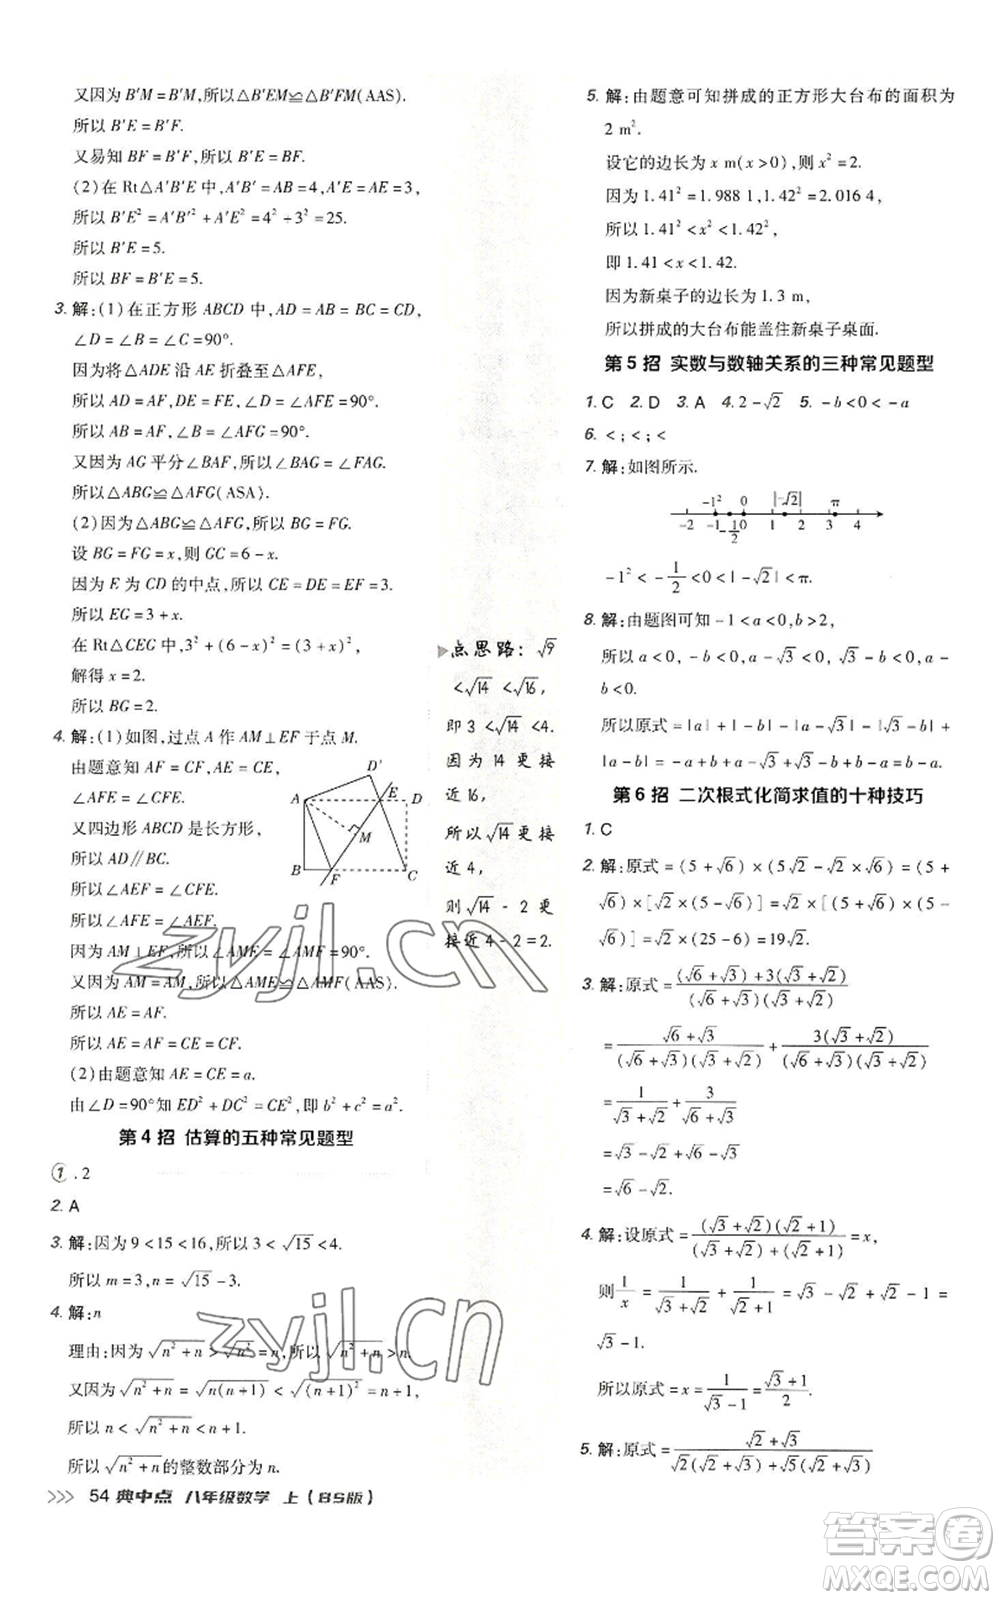 又因为 B′M = B′M,所以△B′EM≌△B′FM(AAS).
所以 B′E = B′F.
又易知 BF = B′F,所以 B′E = BF.
(2)在 Rt△A′B′E 中,A′B′ = AB = 4,A′E = AE = 3,
所以 B′E² = A′B′² + A′E² = 4² + 3² = 25.
所以 B′E = 5.
所以 BF = B′E = 5.
3. 解:(1)在正方形 ABCD 中,AD = AB = BC = CD,
∠D = ∠B = ∠C = 90°.
因为将△ADE 沿 AE 折叠至△AFE,
所以 AD = AF,∠D = ∠AFE = 90°.
所以 AB = AF,∠AFG = 90°.
又因为 AG 平分∠BAF,所以∠BAG = ∠FAG.
所以△ABG≌△AFG(ASA).
(2)因为△ABG≌△AFG,所以 BG = FG.
设 BG = FG = x,则 GC = 6 - x.
因为 E 为 CD 的中点,所以 CE = DE = EF = 3.
所以 EG = 3 + x.
在 Rt△CEG 中,3² + (6 - x)² = (3 + x)²,
解得 x = 2.
所以 BG = 2.
4. 解:(1)如图,过点 A 作 AM⊥EF 于点 M.
由题意知 AF = CF,AE = CE,
∠AFE = ∠CFE.
又四边形 ABCD 是长方形,
所以 AD∥BC.
所以∠AEF = ∠CFE.
所以∠AFE = ∠AEF.
因为 AM⊥EF,所以∠AMF = ∠AME = 90°.
又因为 AM = AM,所以△AME≌△AMF(AAS).
所以 AE = AF.
所以 AE = AF = CE = CF.
(2)由题意知 AE = CE = a.
由∠D = 90°知 ED² + DC² = CE²,即 b² + c² = a².
D′
A
E
D
M
B
F
C
第 4 招 估算的五种常见题型
1. 2
2. A
3. 解:因为 9 < 15 < 16,所以 3 < √15 < 4.
所以 m = 3,n = √15 - 3.
4. 解:n
理由:因为√(n² + n) > √n² = n,所以√(n² + n) > n.
又因为√(n² + n) = √(n(n + 1)) < √((n + 1)²) = n + 1,
所以 n < √(n² + n) < n + 1.
所以√(n² + n)的整数部分为 n.
点思路: √9
< √14 < √16,
即 3 < √14 < 4.
因为 14 更接
近 16,
所以 √14 更接
近 4,
则 √14 - 2 更
接近 4 - 2 = 2.
5. 解:由题意可知拼成的正方形大台布的面积为
2 m².
设它的边长为 x m(x > 0),则 x² = 2.
因为 1.41² = 1.988 1,1.42² = 2.016 4,
所以 1.41² < x² < 1.42².
即 1.41 < x < 1.42.
因为新桌子的边长为 1.3 m,
所以拼成的大台布能盖住新桌子桌面.
第 5 招 实数与数轴关系的三种常见题型
1. C 2. D 3. A 4. 2 - √2 5. -b < 0 < -a
6. < ; < ; <
7. 解:如图所示.
-1² 0 |-√2| π
-2 -1 -1/2 0 1 2 3 4
-1² < -1/2 < 0 < |-√2| < π.
8. 解:由题图可知 -1 < a < 0,b > 2,
所以 a < 0, -b < 0,a - √3 < 0,√3 - b < 0,a - b
< 0.
所以原式 = |a| + |-b| - |a - √3| - |√3 - b| +
|a - b| = -a + b + a - √3 + √3 - b - a + b = b - a.
第 6 招 二次根式化简求值的十种技巧
1. C
2. 解:原式 = (5 + √6) × (5√2 - √2 × √6) = (5 +
√6) × [√2 × (5 - √6)] = √2 × [(5 + √6) × (5 -
√6)] = √2 × (25 - 6) = 19√2.
3. 解:原式 = ((√6 + √3) + 3(√3 + √2))/((√6 + √3)(√3 + √2))
= (√6 + √3)/((√6 + √3)(√3 + √2)) + 3(√3 + √2)/((√6 + √3)(√3 + √2))
= 1/(√3 + √2) + 3/(√6 + √3)
= √3 - √2 + √6 - √3
= √6 - √2.
4. 解:设原式 = ((√3 + √2)(√2 + 1))/((√3 + √2) + (√2 + 1)) = x,
则 1/x = 1/(√2 + 1) + 1/(√3 + √2) = √2 - 1 + √3 - √2 =
√3 - 1.
所以原式 = x = 1/(√3 - 1) = (√3 + 1)/2.
5. 解:原式 = (√2 + √3)/(√2(√2 + √3) + √5(√2 + √3))
>>> 54 典中点 八年级数学 上(BS版)
zyjl.cn
zyjl.cn
答案卷
MXQE.COM